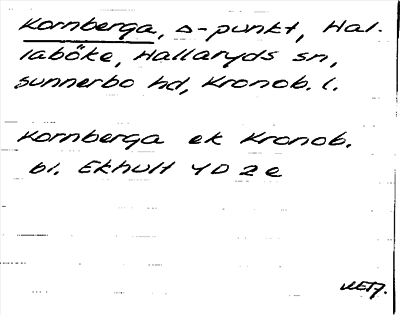 Kornberga, △-punkt, Hal-
laböke, Hallaryds sn,
Sunnerbo hd, Kronob. l.
Kornberga ek Kronob.
bl. Ekhult 4D 2e